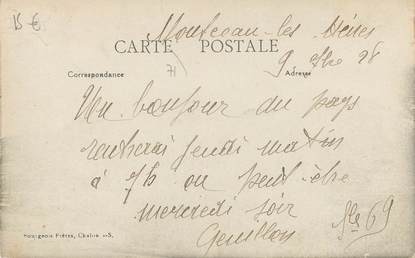 15 €
Montceau-les-Mines
CARTE POSTALE
71
9 28
Correspondance
Adresse
Un bonjour du pays
rentrerai jeudi matin
à 7h ou peut-être
mercredi soir
Bourgeois Frères, Chalon s-S.
69